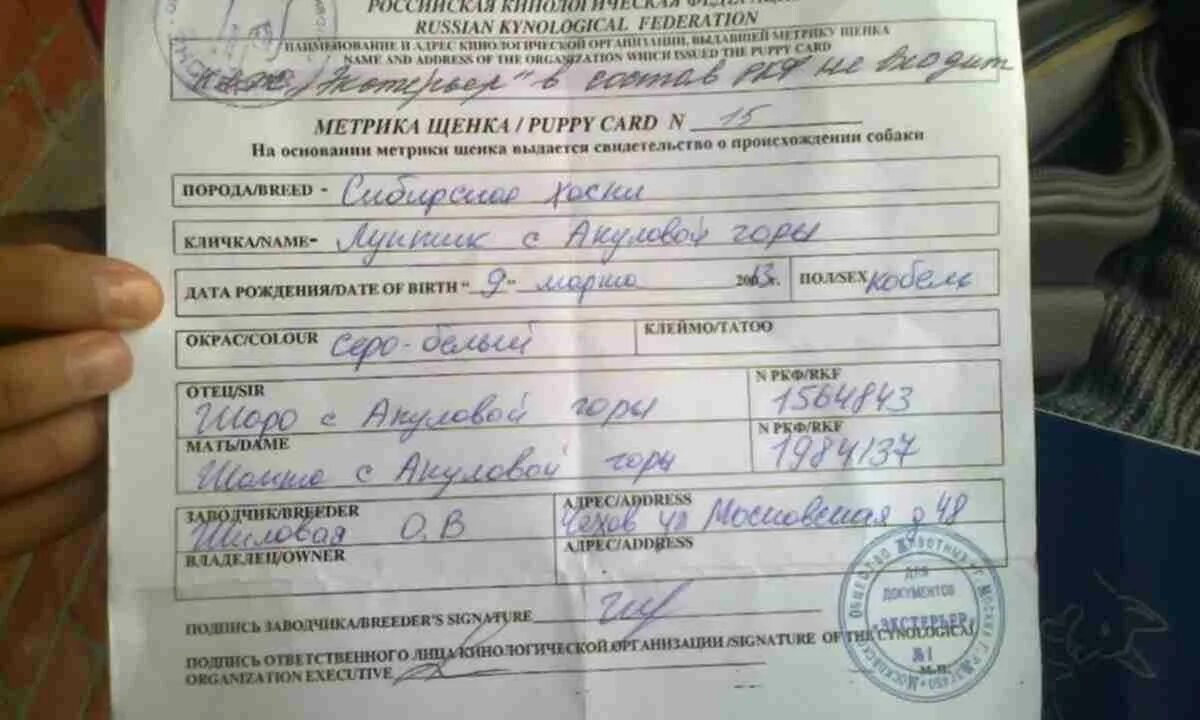 РОССИЙСКАЯ КИНОЛОГИЧЕСКАЯ ФЕДЕРАЦ
RUSSIAN KYNOLOGICAL FEDERATION
НАИМЕНОВАНИЕ И АДРЕС КИНОЛОГИЧЕСКОЙ ОРГАНИЗАЦИИ, ВЫДАВШЕЙ МЕТРИКУ ЩЕНКА
NAME AND ADDRESS OF THE ORGANIZATION WHICH ISSUED THE PUPPY CARD
"Экстерьер" в состав РКФ не входит
МЕТРИКА ЩЕНКА / PUPPY CARD N 15
На основании метрики щенка выдается свидетельство о происхождении собаки
ПОРОДА/BREED - Сибирская Хаски
КЛИЧКА/NAME- Лунтик с Акуловой горы
ДАТА РОЖДЕНИЯ/DATE OF BIRTH "9" марта 2013г. ПОЛ/SEX кобель
ОКРАС/COLOUR Серо-белый КЛЕЙМО/TATOO
ОТЕЦ/SIR N РКФ/RKF
Шоро с Акуловой горы 1564843
МАТЬ/DAME N РКФ/RKF
с Акуловой горы 1984137
ЗАВОДЧИК/BREEDER АДРЕС/ADDRESS
Шиловая О.В Чехов ул Московская д 48
ВЛАДЕЛЕЦ/OWNER АДРЕС/ADDRESS
ПОДПИСЬ ЗАВОДЧИКА/BREEDER'S SIGNATURE
ПОДПИСЬ ОТВЕТСТВЕННОГО ЛИЦА КИНОЛОГИЧЕСКОЙ ОРГАНИЗАЦИИ /SIGNATURE OF THE CYNOLOGICAL
ORGANIZATION EXECUTIVE М.П.
ДЛЯ
ДОКУМЕНТОВ
"ЭКСТЕРЬЕР"
№1